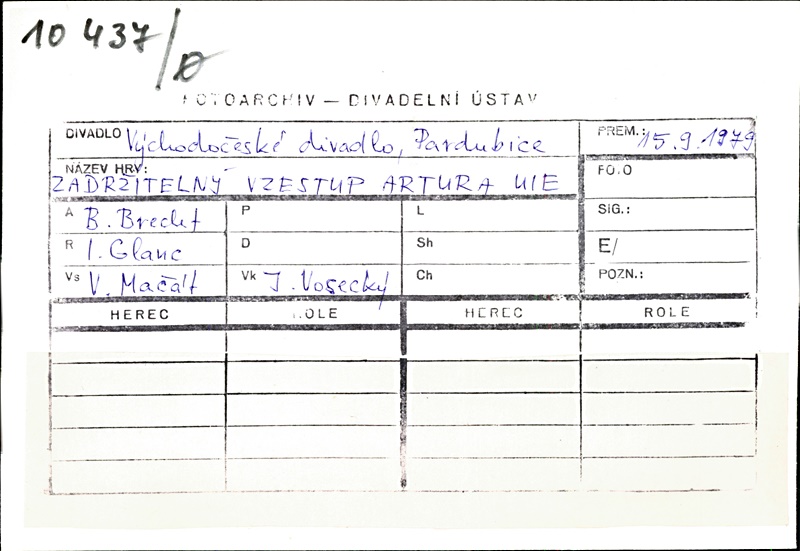 10 437/Ø
FOTOARCHIV — DIVADELNÍ ÚSTAV
DIVADLO Východočeské divadlo, Pardubice PREM.: 15.9.1979
NÁZEV HRY: ZADRŽITELNÝ VZESTUP ARTURA UIE FOTO
A B. Brecht P L SIG.:
R I. Glanc D Sh E/
Vs V. Mačát Vk J. Vosecký Ch POZN.:
HEREC ROLE HEREC ROLE